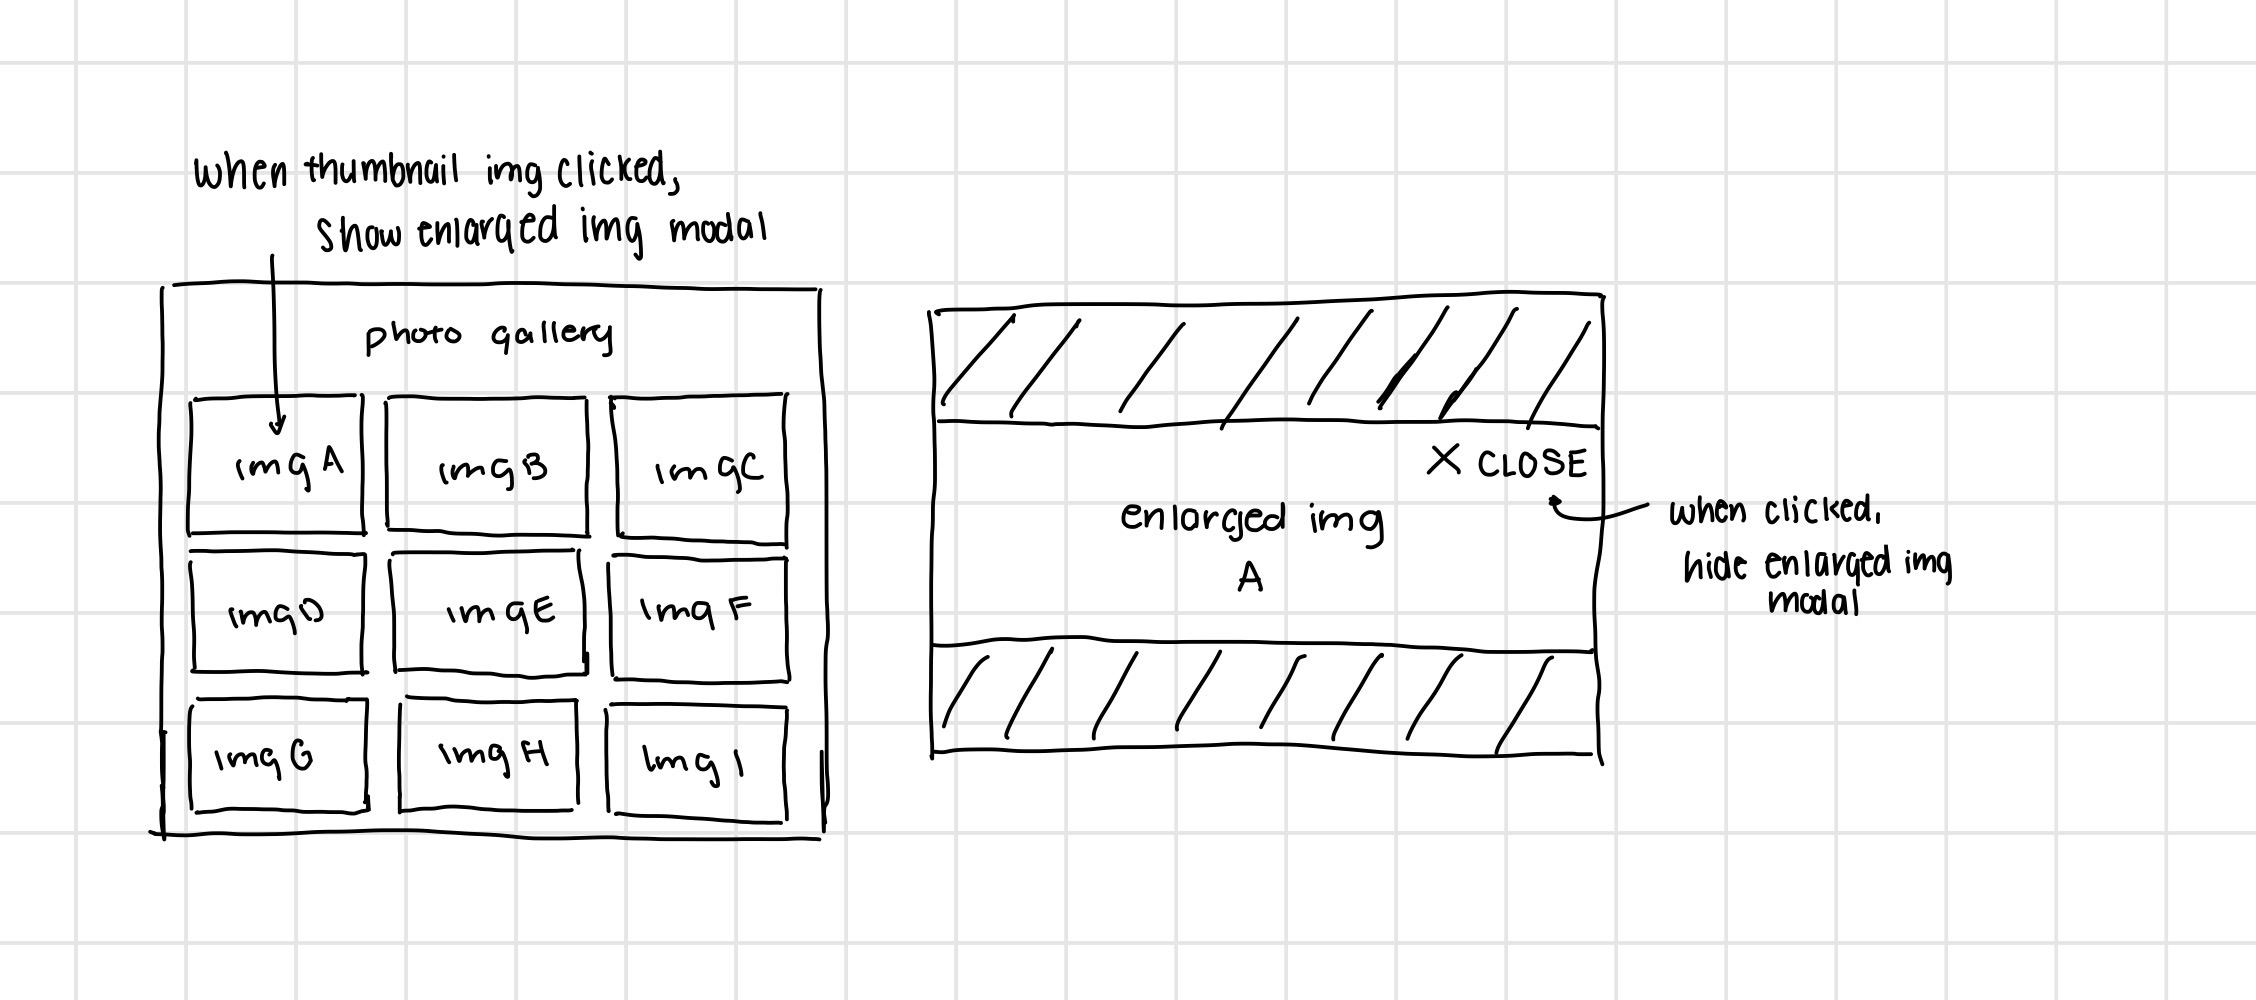 when thumbnail img clicked,
show enlarged img modal
photo gallery
img A
img B
img C
img D
img E
img F
img G
img H
img I
X CLOSE
enlarged img
A
when clicked,
hide enlarged img
modal